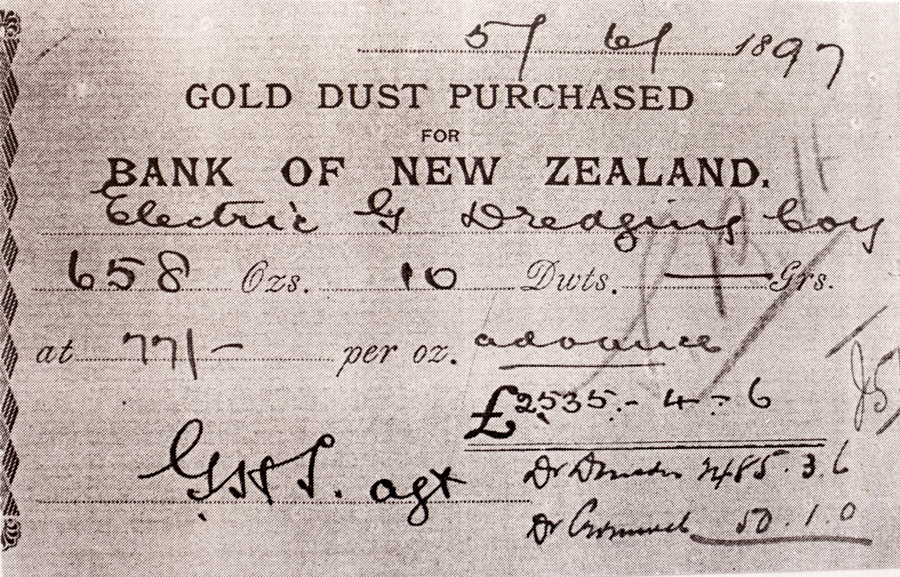 5/ 6/ 1897
GOLD DUST PURCHASED
FOR
BANK OF NEW ZEALAND.
Electric G Dredging Coy
658 Ozs. 10 Dwts. — Grs.
at 77/- per oz. advance
£2535.- 4 - 6
G.H.S. agt
Dr Dunedin 2485.3.6
Dr Cromwell 50.1.0